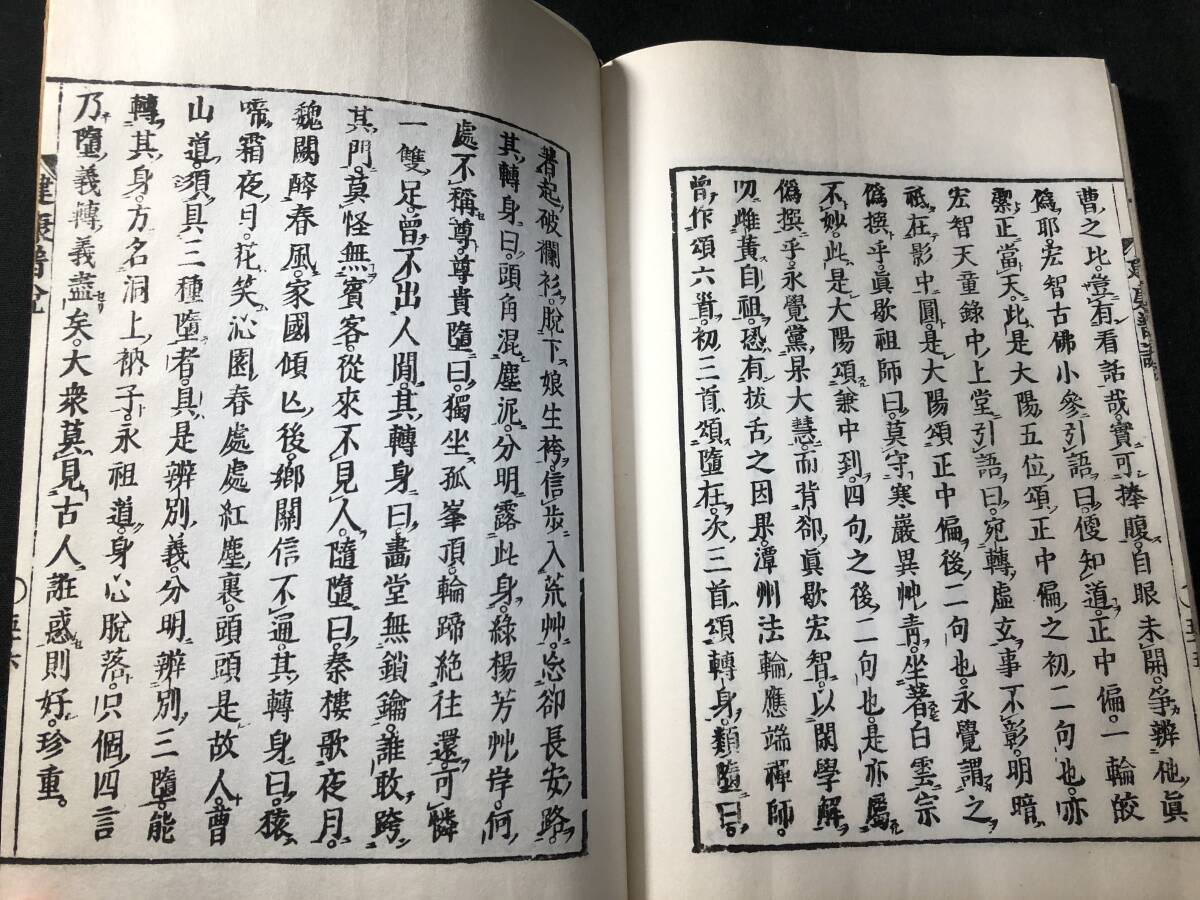 曹之比。豈有看話哉。實可捧腹。自眼未開。爭辨他眞
僞耶。宏智古佛小參引語曰。便知道。正中偏。一輪皎
潔正當天。此是大陽五位頌正中偏之初二句也。亦
宏智天童錄中上堂引語曰。宛轉虛玄事不彰。明暗
祗在影中圓。是大陽頌正中偏後二句也。永覺謂之
僞撰乎。眞歇祖師曰。莫守寒巖異艸青。坐著白雲宗
不妙。此是大陽頌兼中到四句之後二句也。是亦屬
僞撰乎。永覺黨杲大慧。而背卻眞歇宏智。以閑學解
叨雌黄自祖。恐有拔舌之因果。潭州法輪應端禪師。
曾作頌六首。初三首頌墮在。次三首頌轉身。類墮曰。
著起破襴衫。脫下娘生袴。信步入荒艸。忘卻長安路。
其轉身曰。頭角混塵泥。分明露此身。綠楊芳艸岸。何
處不稱尊。尊貴墮曰。獨坐孤峯頂。輪蹄絶往還。可憐
一雙足。曾不出人閒。其轉身曰。畫堂無鎖鑰。誰敢跨
其門。莫怪無賓客。從來不見人。隨墮曰。秦樓歌夜月。
魏闕醉春風。家國傾亾後。鄉關信不通。其轉身曰。猿
啼霜夜月。花笑沁園春。處處紅塵裏。頭頭是故人。曹
山道。須具三種墮者。具是辨別義。分明辨別三墮。能
轉其身。方名洞上衲子。永祖道。身心脫落。只個四言
乃墮義轉義盡矣。大衆莫見古人誑惑則好。珍重。